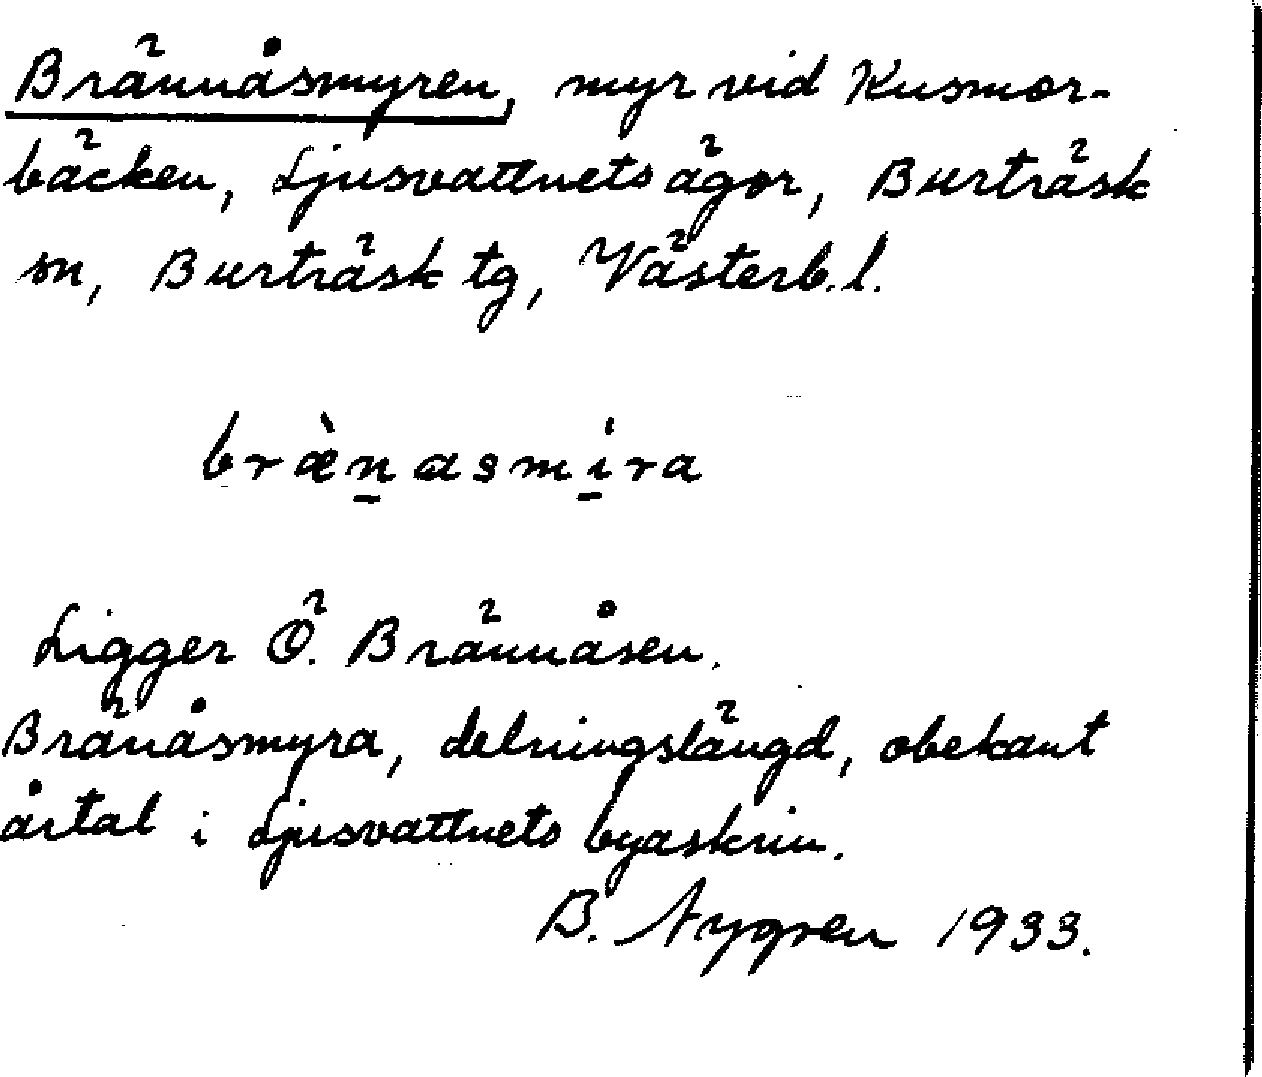 Brännåsmyren, myr vid Kusmor-
bäcken, Ljusvattnets ägor, Burträsk
sn, Burträsk tg, Västerb. l.
bræ̀n̲asmi̲ra
Ligger Ö. Brännåsen.
Bränåsmyra, delningslängd, obekant
årtal i Ljusvattnets byaskrin.
B. Nygren 1933.